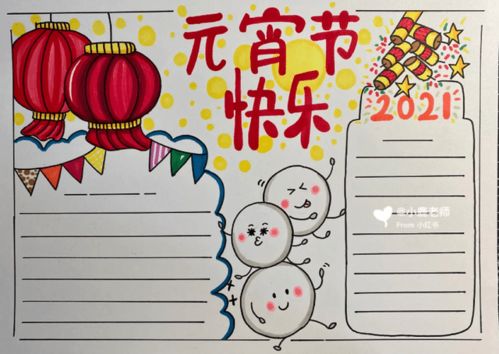 元宵节
快乐
2021
@小鹿老师
From 小红书